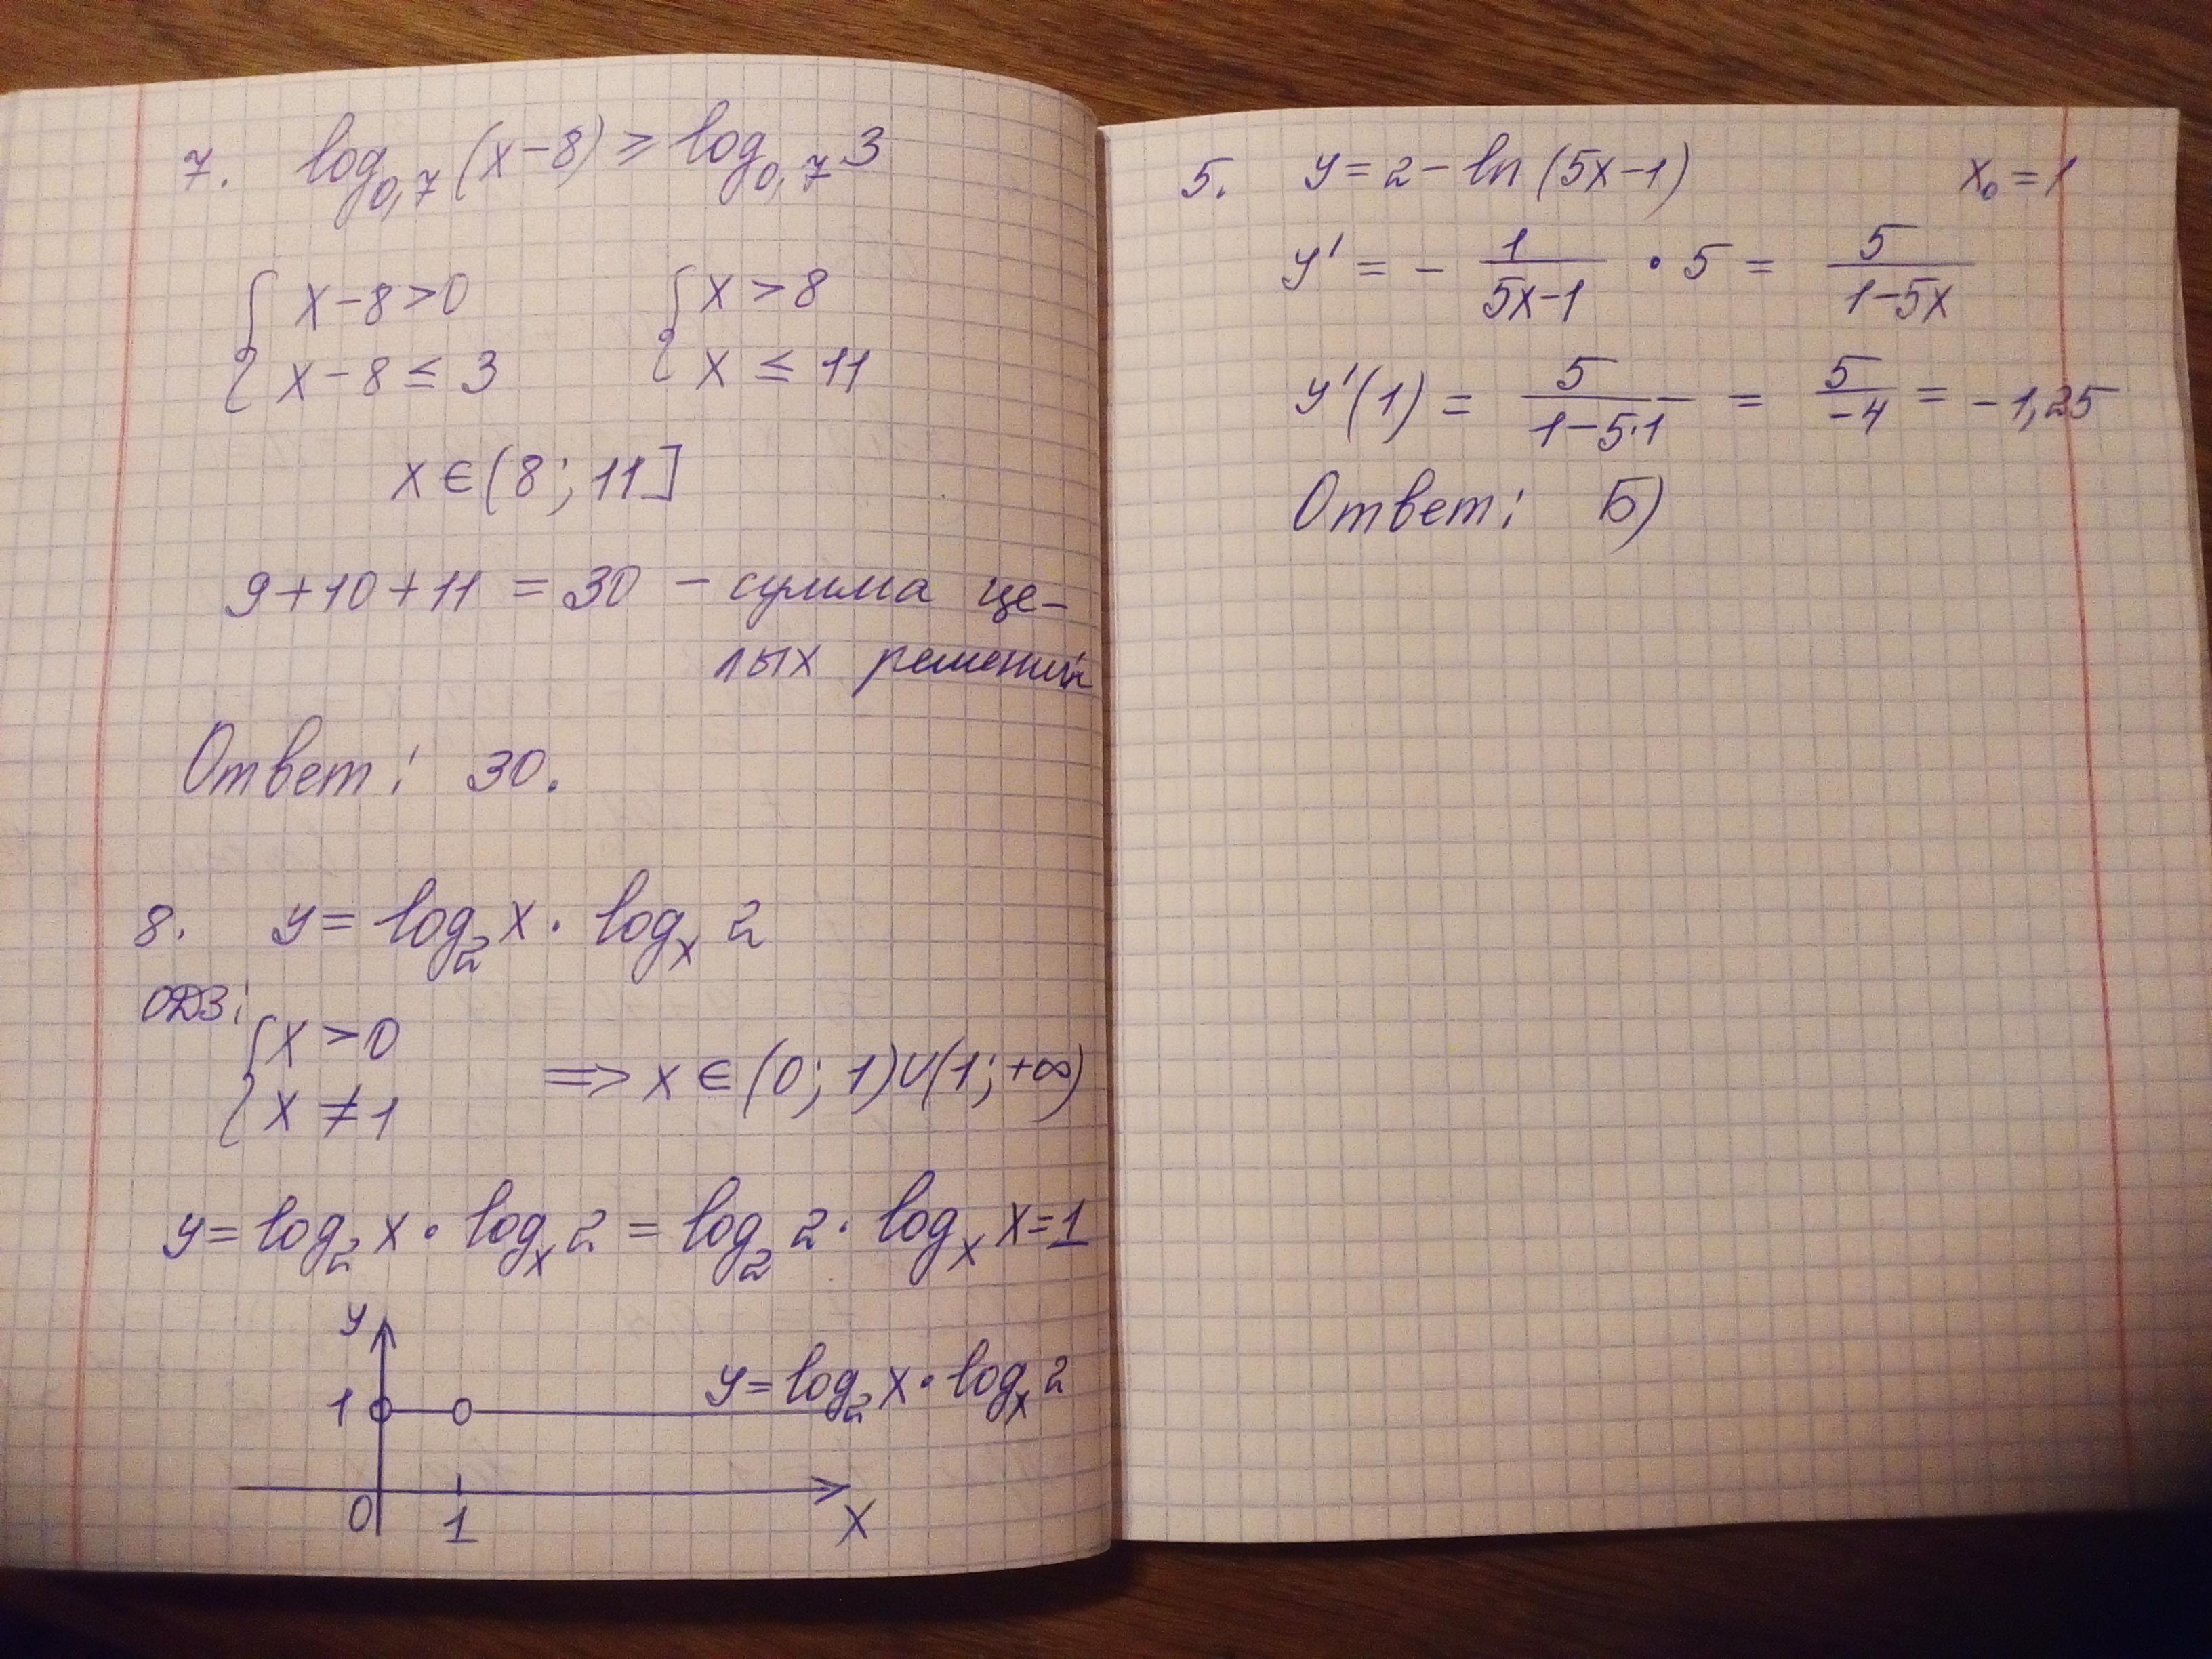 7. log₀,₇(x-8) ≥ log₀,₇3
{ x-8>0 { x>8
x-8≤3 x≤11
x∈(8; 11]
9+10+11 = 30 – сумма це-
лых решений
Ответ: 30.
8. y = log₂x · logₓ2
ОДЗ:
{ x>0
x≠1 => x∈(0; 1)∪(1; +∞)
y = log₂x · logₓ2 = log₂2 · logₓx = 1
y
y = log₂x · logₓ2
1
0 1 x
5. y = 2 - ln(5x-1) x₀ = 1
y' = - 1/(5x-1) · 5 = 5/(1-5x)
y'(1) = 5/(1-5·1) = 5/-4 = -1,25
Ответ: Б)